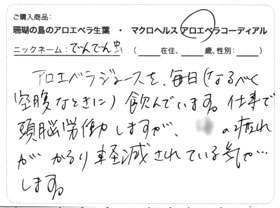 ご購入商品:
珊瑚の島のアロエベラ生葉 ・ マクロヘルス アロエベラコーディアル
ニックネーム:でんでん虫 ( 在住、 歳、性別: )
アロエベラジュースを、毎日(なるべく
空腹なときに)飲んでいます。仕事で
頭脳労働しますが、 の疲れ
が かなり軽減されている気が…
します。